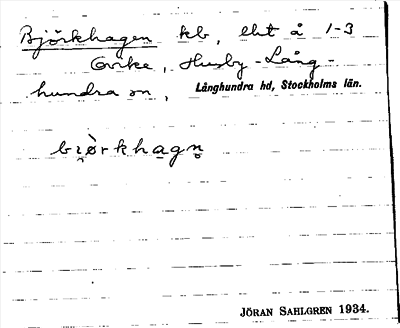 Björkhagen kb, lht å 1-3
Gorke, Husby-Lång-
hundra sn, Långhundra hd, Stockholms län.
bi̯ò̤rkhag̲n̥
JÖRAN SAHLGREN 1934.